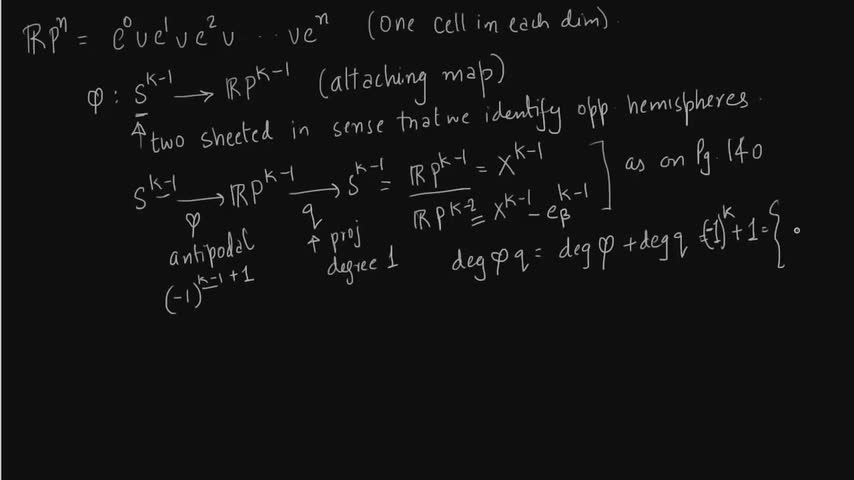 ℝPⁿ = e⁰ ∪ e¹ ∪ e² ∪ ... ∪ eⁿ (One cell in each dim).
φ : S^{k-1} → ℝP^{k-1} (attaching map)
↑ two sheeted in sense that we identify opp hemispheres.
S^{k-1} →_φ ℝP^{k-1} →_q S^{k-1} = ℝP^{k-1} / ℝP^{k-2} = X^{k-1} / = X^{k-1} - e_β^{k-1} ] as on Pg. 140
antipodal ↑ proj
(-1)^{k-1+1} degree 1 deg φ q = deg φ + deg q = (-1)^k + 1 = {